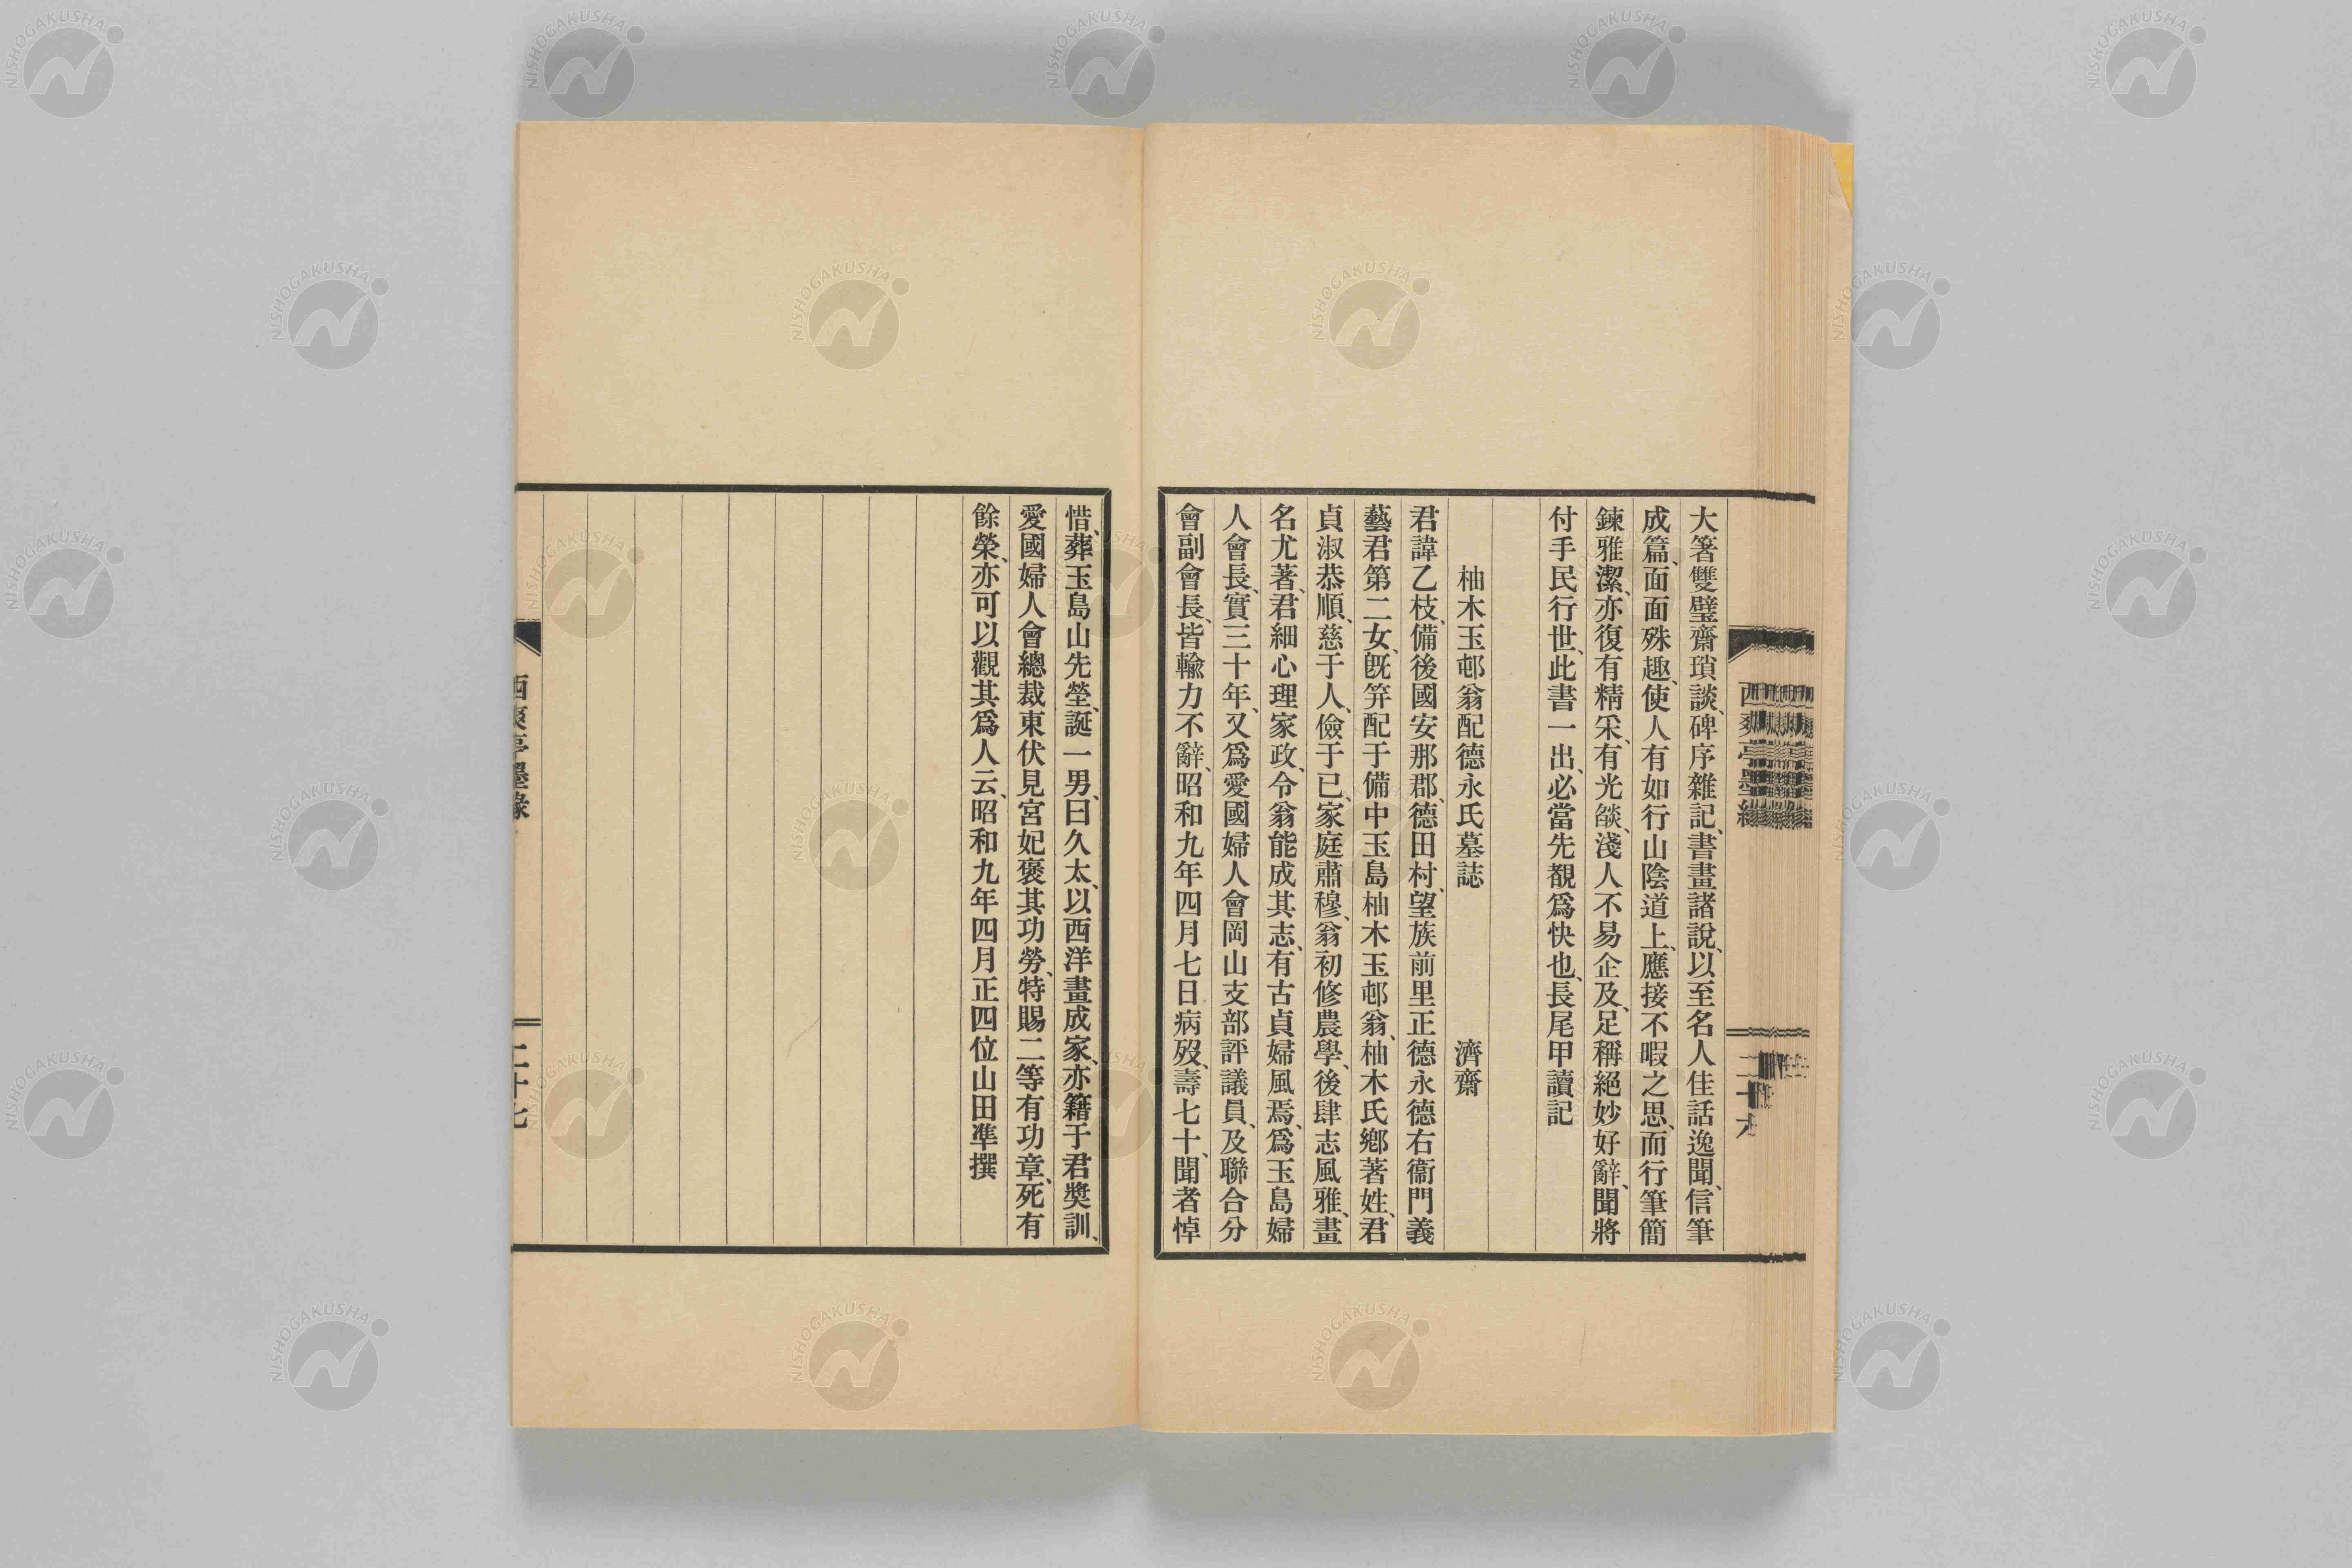 大箸雙璧齋瑣談、碑序雜記、書畫諸說、以至名人佳話逸聞、信筆
成篇、面面殊趣、使人有如行山陰道上、應接不暇之思、而行筆簡
鍊雅潔、亦復有精采、有光燄、淺人不易企及、足稱絕妙好辭、聞將
付手民行世、此書一出、必當先覩爲快也、長尾甲讀記
柚木玉邨翁配德永氏墓誌 濟齋
君諱乙枝、備後國安那郡、德田村、望族前里正德永德右衞門義
藝君第二女、旣笄配于備中玉島柚木玉邨翁、柚木氏鄕著姓、君
貞淑恭順、慈于人、儉于已、家庭肅穆、翁初修農學、後肆志風雅、畫
名尤著、君細心理家政、令翁能成其志、有古貞婦風焉、爲玉島婦
人會長、實三十年、又爲愛國婦人會岡山支部評議員、及聯合分
會副會長、皆輸力不辭、昭和九年四月七日病歿、壽七十、聞者悼
惜、葬玉島山先塋、誕一男、曰久太、以西洋畫成家、亦籍于君奬訓、
愛國婦人會總裁東伏見宮妃褒其功勞、特賜二等有功章、死有
餘榮、亦可以觀其爲人云、昭和九年四月正四位山田準撰
西爽亭墨緣
二十七
NISHOGAKUSHA